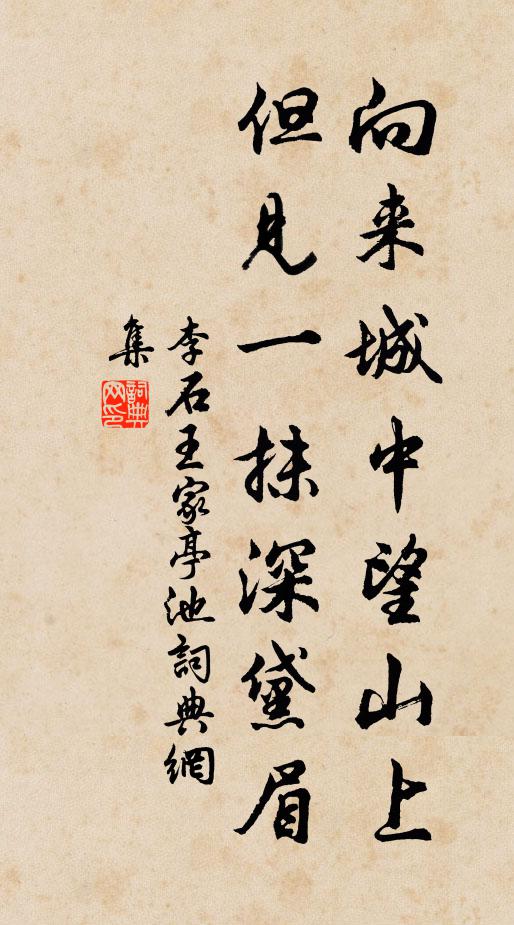 向来城中望山上
但见一抹深黛眉
李石王家亭池詞典網
集
詞典网印